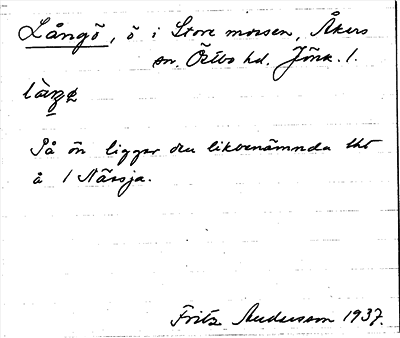 Långö, ö i Store mossen, Åkers
sn, Östbo hd. Jönk. l.
På ön ligger den likbenämnda tht
å 1 Nässja.
Fritz Andersson 1937.